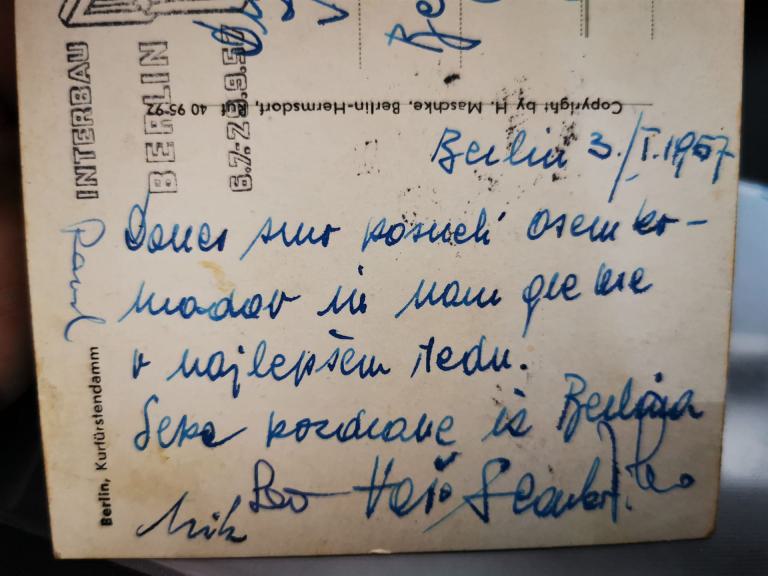 INTERBAU
BERLIN
6.7.-29.9.57
Copyright by H. Maschke, Berlin-Hermsdorf, Ruf 40 95 92
Berlin 3./I.1957
Danes smo posneli osem ko-
madov in nam gre vse
v najlepšem redu.
Lepe pozdrave iz Berlina
Vaš
Berlin, Kurfürstendamm